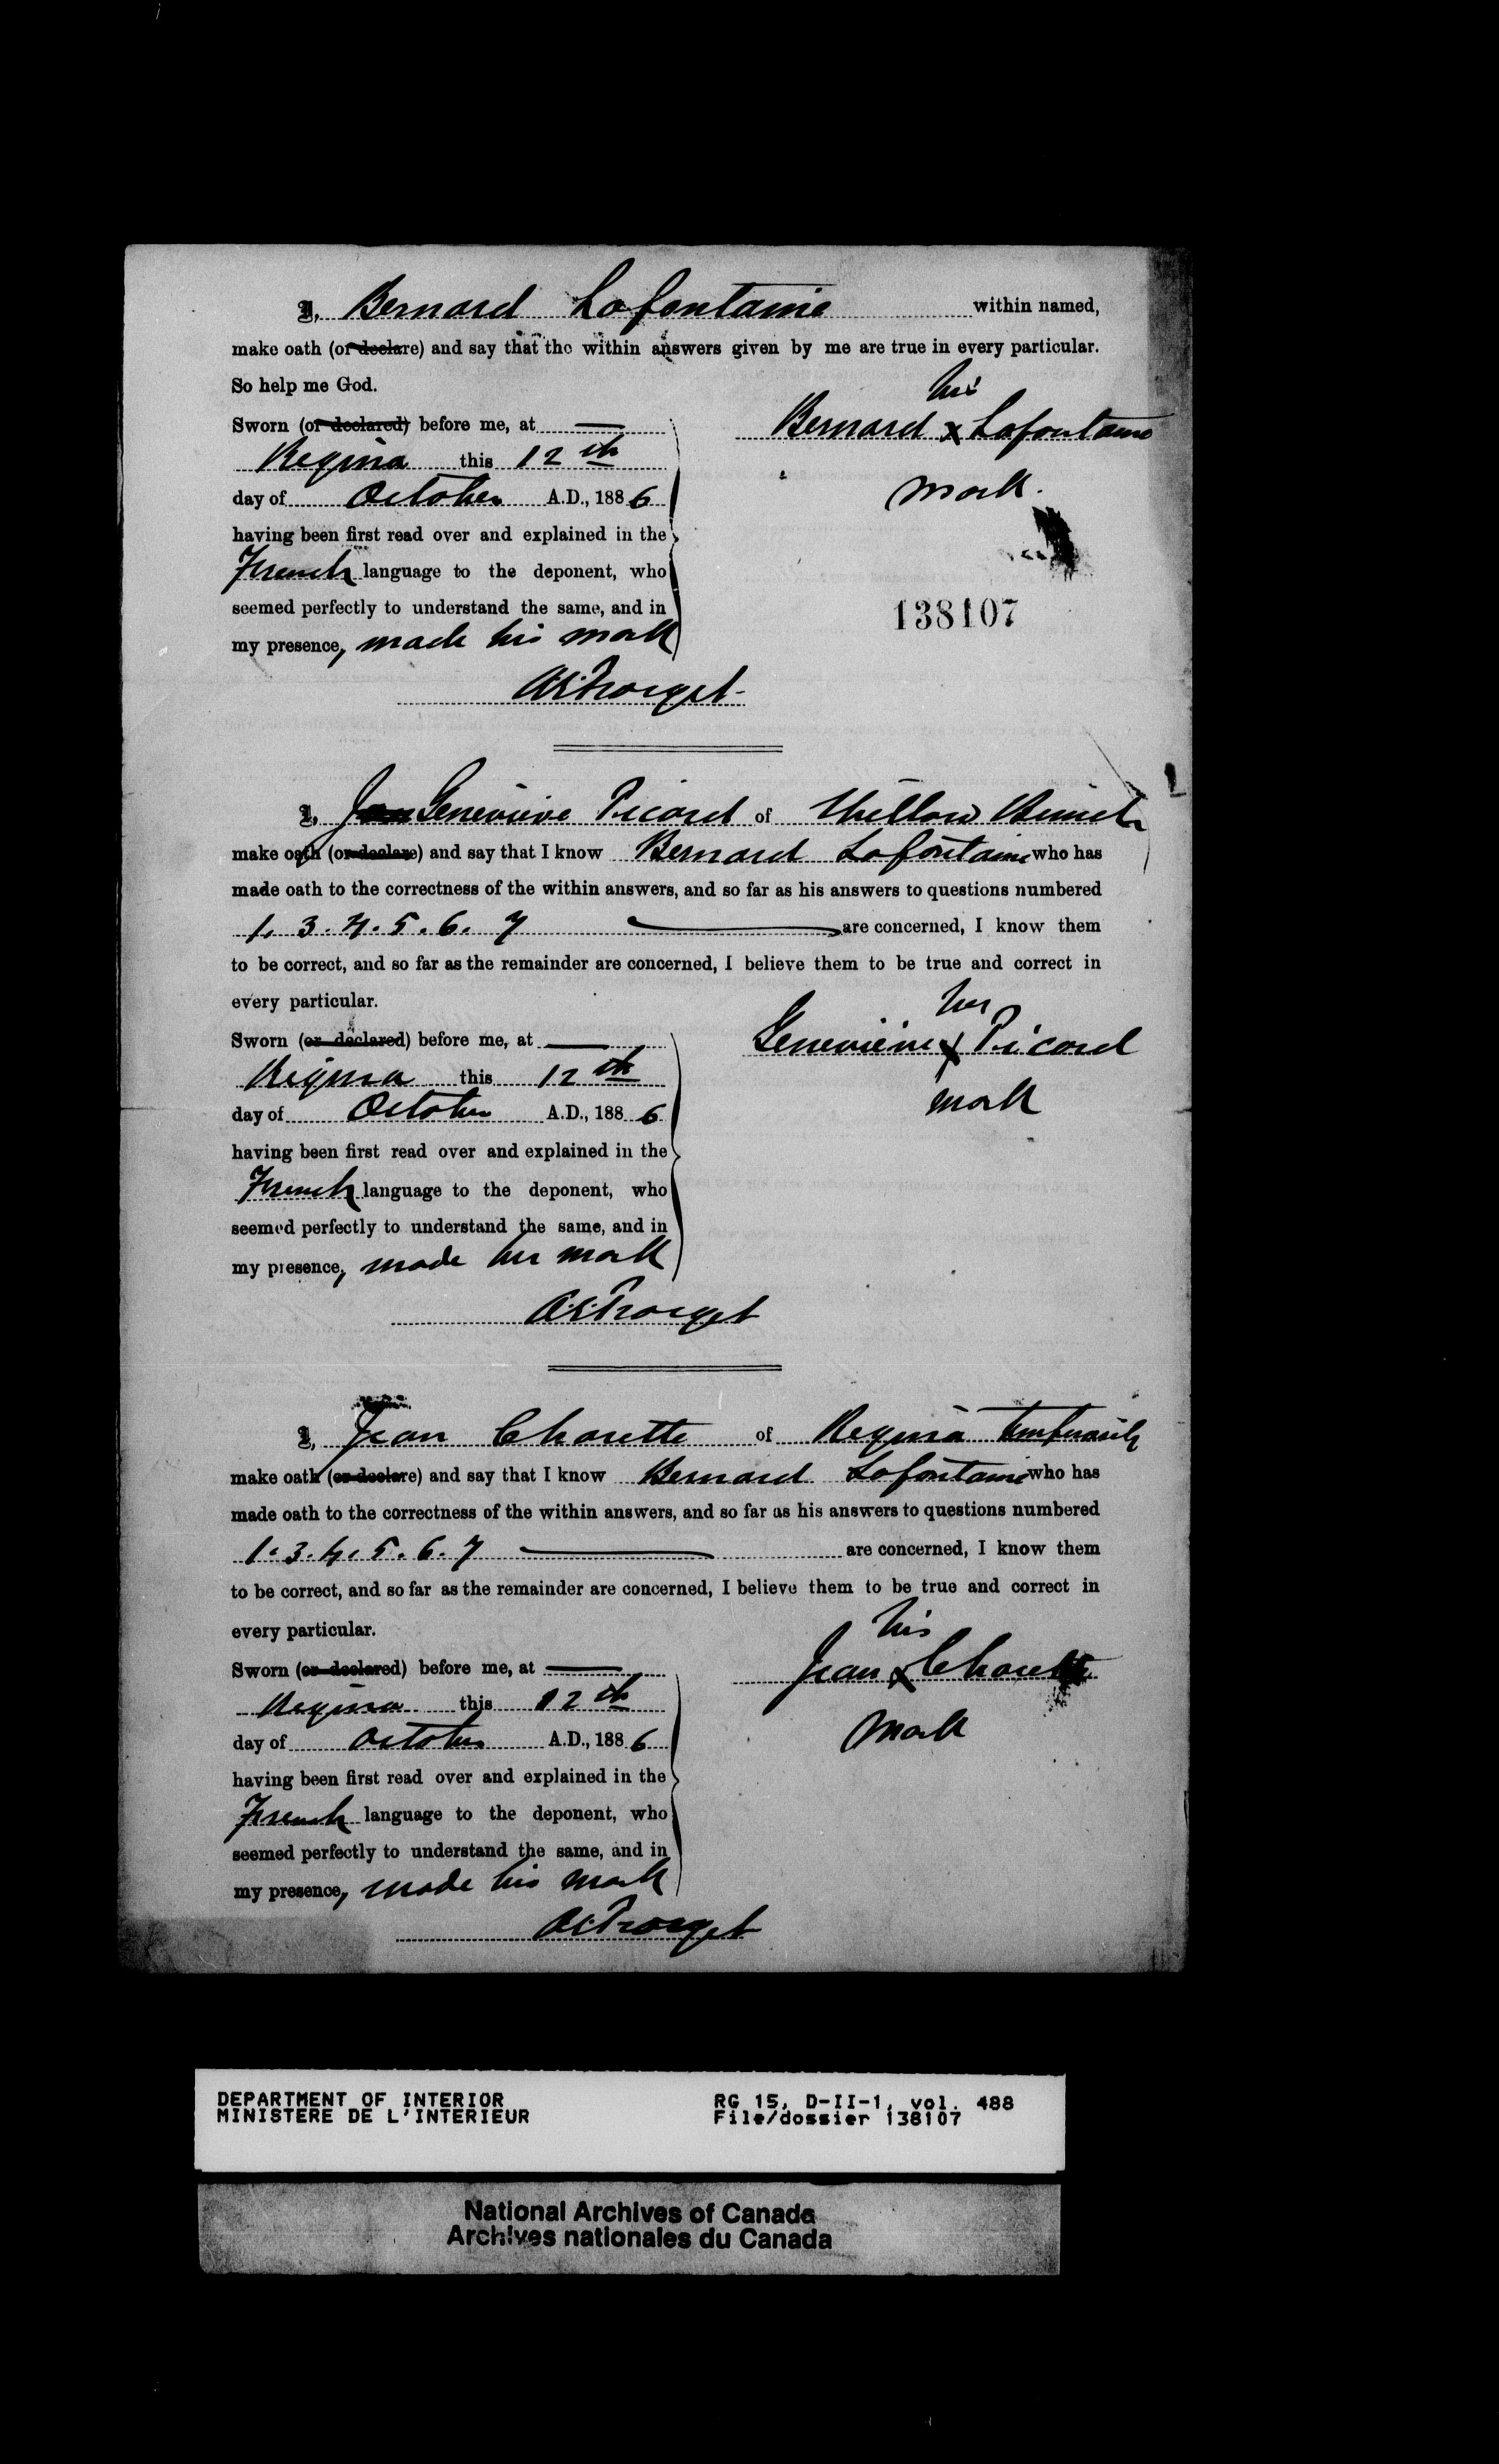 I, Bernard Lafontaine within named,
make oath (or declare) and say that the within answers given by me are true in every particular.
So help me God.
his
Sworn (or declared) before me, at Bernard x Lafontaine
Regina this 12th
day of October A.D., 1886 mark.
having been first read over and explained in the
French language to the deponent, who
seemed perfectly to understand the same, and in
138107
my presence, made his mark
A.E. Forget
I, Jean Genevieve Picard of Willow Bunch
make oath (or declare) and say that I know Bernard Lafontaine who has
made oath to the correctness of the within answers, and so far as his answers to questions numbered
1. 3. 4. 5. 6. 7 are concerned, I know them
to be correct, and so far as the remainder are concerned, I believe them to be true and correct in
every particular.
her
Sworn (or declared) before me, at Genevieve x Picard
Regina this 12th
day of October A.D., 1886 mark
having been first read over and explained in the
French language to the deponent, who
seemed perfectly to understand the same, and in
my presence, made her mark
A.E. Forget
I, Jean Charette of Regina temporarily
make oath (or declare) and say that I know Bernard Lafontaine who has
made oath to the correctness of the within answers, and so far as his answers to questions numbered
1. 3. 4. 5. 6. 7 are concerned, I know them
to be correct, and so far as the remainder are concerned, I believe them to be true and correct in
every particular.
his
Sworn (or declared) before me, at Jean x Charette
Regina this 12th
day of October A.D., 1886 mark
having been first read over and explained in the
French language to the deponent, who
seemed perfectly to understand the same, and in
my presence, made his mark
A.E. Forget
DEPARTMENT OF INTERIOR RG 15, D-II-1, vol. 488
MINISTERE DE L'INTERIEUR File/dossier 138107
National Archives of Canada
Archives nationales du Canada